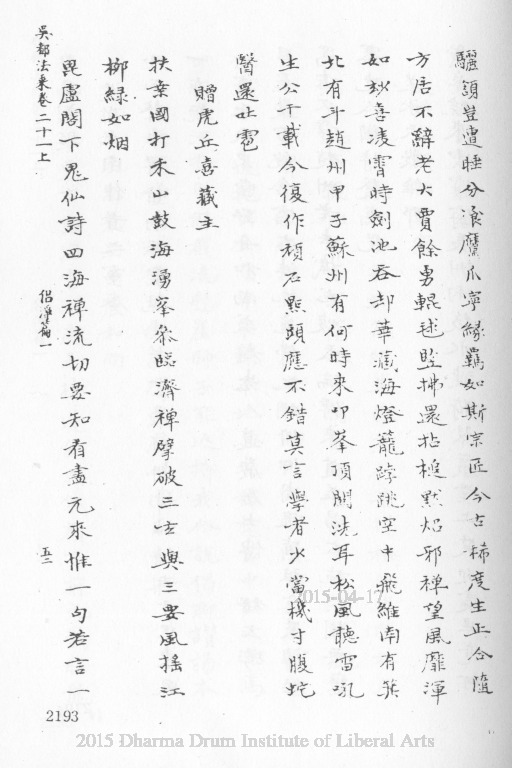 驪頷豈遭睡分浪鷹爪寧緣羈如斯宗匠今古稀度生正合隨
方居不辭老大賈餘勇輥毬豎拂還拈槌默炤邪禪望風靡渾
如秋喜凌霄時劍池吞却華藏海燈籠踍跳空中飛維南有箕
北有斗趙州甲子蘇州有何時來叩峯頂關洗耳松風聽雪吼
生公千載今復作頑石點頭應不錯莫言學者火當機寸腹蛇
醫還吐雹
贈虎丘喜藏主
扶桑國打禾山鼓海湧峯參臨濟禪擘破三玄與三要風搖江
柳綠如烟
毘盧閣下鬼仙詩四海禪流切要知看盡元來惟一句若言一
吳都法乘卷二十一上
侶淨篇一
五二
2193
2015-04-17
2015 Dharma Drum Institute of Liberal Arts